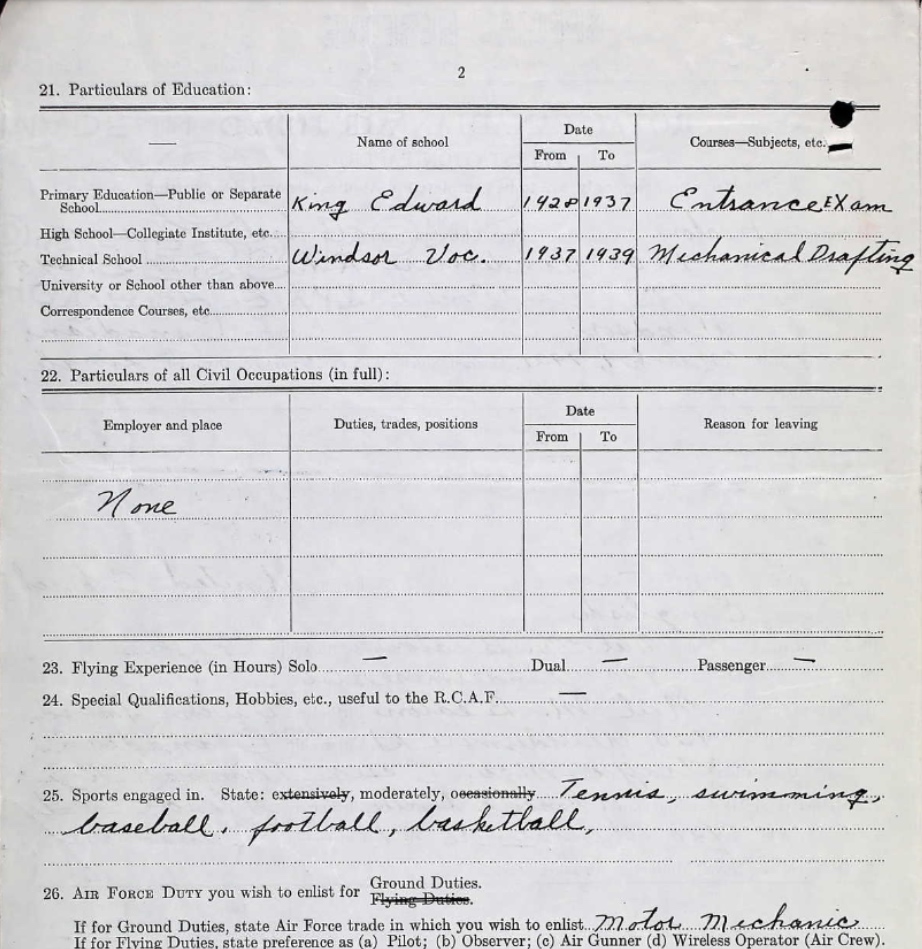 2
21. Particulars of Education:
Name of school Date Courses—Subjects, etc.
From To
Primary Education—Public or Separate School King Edward 1928 1937 Entrance Exam
High School—Collegiate Institute, etc.
Technical School Windsor Voc. 1937 1939 Mechanical Drafting
University or School other than above
Correspondence Courses, etc.
22. Particulars of all Civil Occupations (in full):
Employer and place Duties, trades, positions Date Reason for leaving
From To
None
23. Flying Experience (in Hours) Solo — Dual — Passenger —
24. Special Qualifications, Hobbies, etc., useful to the R.C.A.F. —
25. Sports engaged in. State: extensively, moderately, occasionally Tennis, swimming,
baseball, football, basketball,
26. AIR FORCE DUTY you wish to enlist for Ground Duties.
Flying Duties.
If for Ground Duties, state Air Force trade in which you wish to enlist Motor Mechanic
If for Flying Duties, state preference as (a) Pilot; (b) Observer; (c) Air Gunner (d) Wireless Operator (Air Crew).